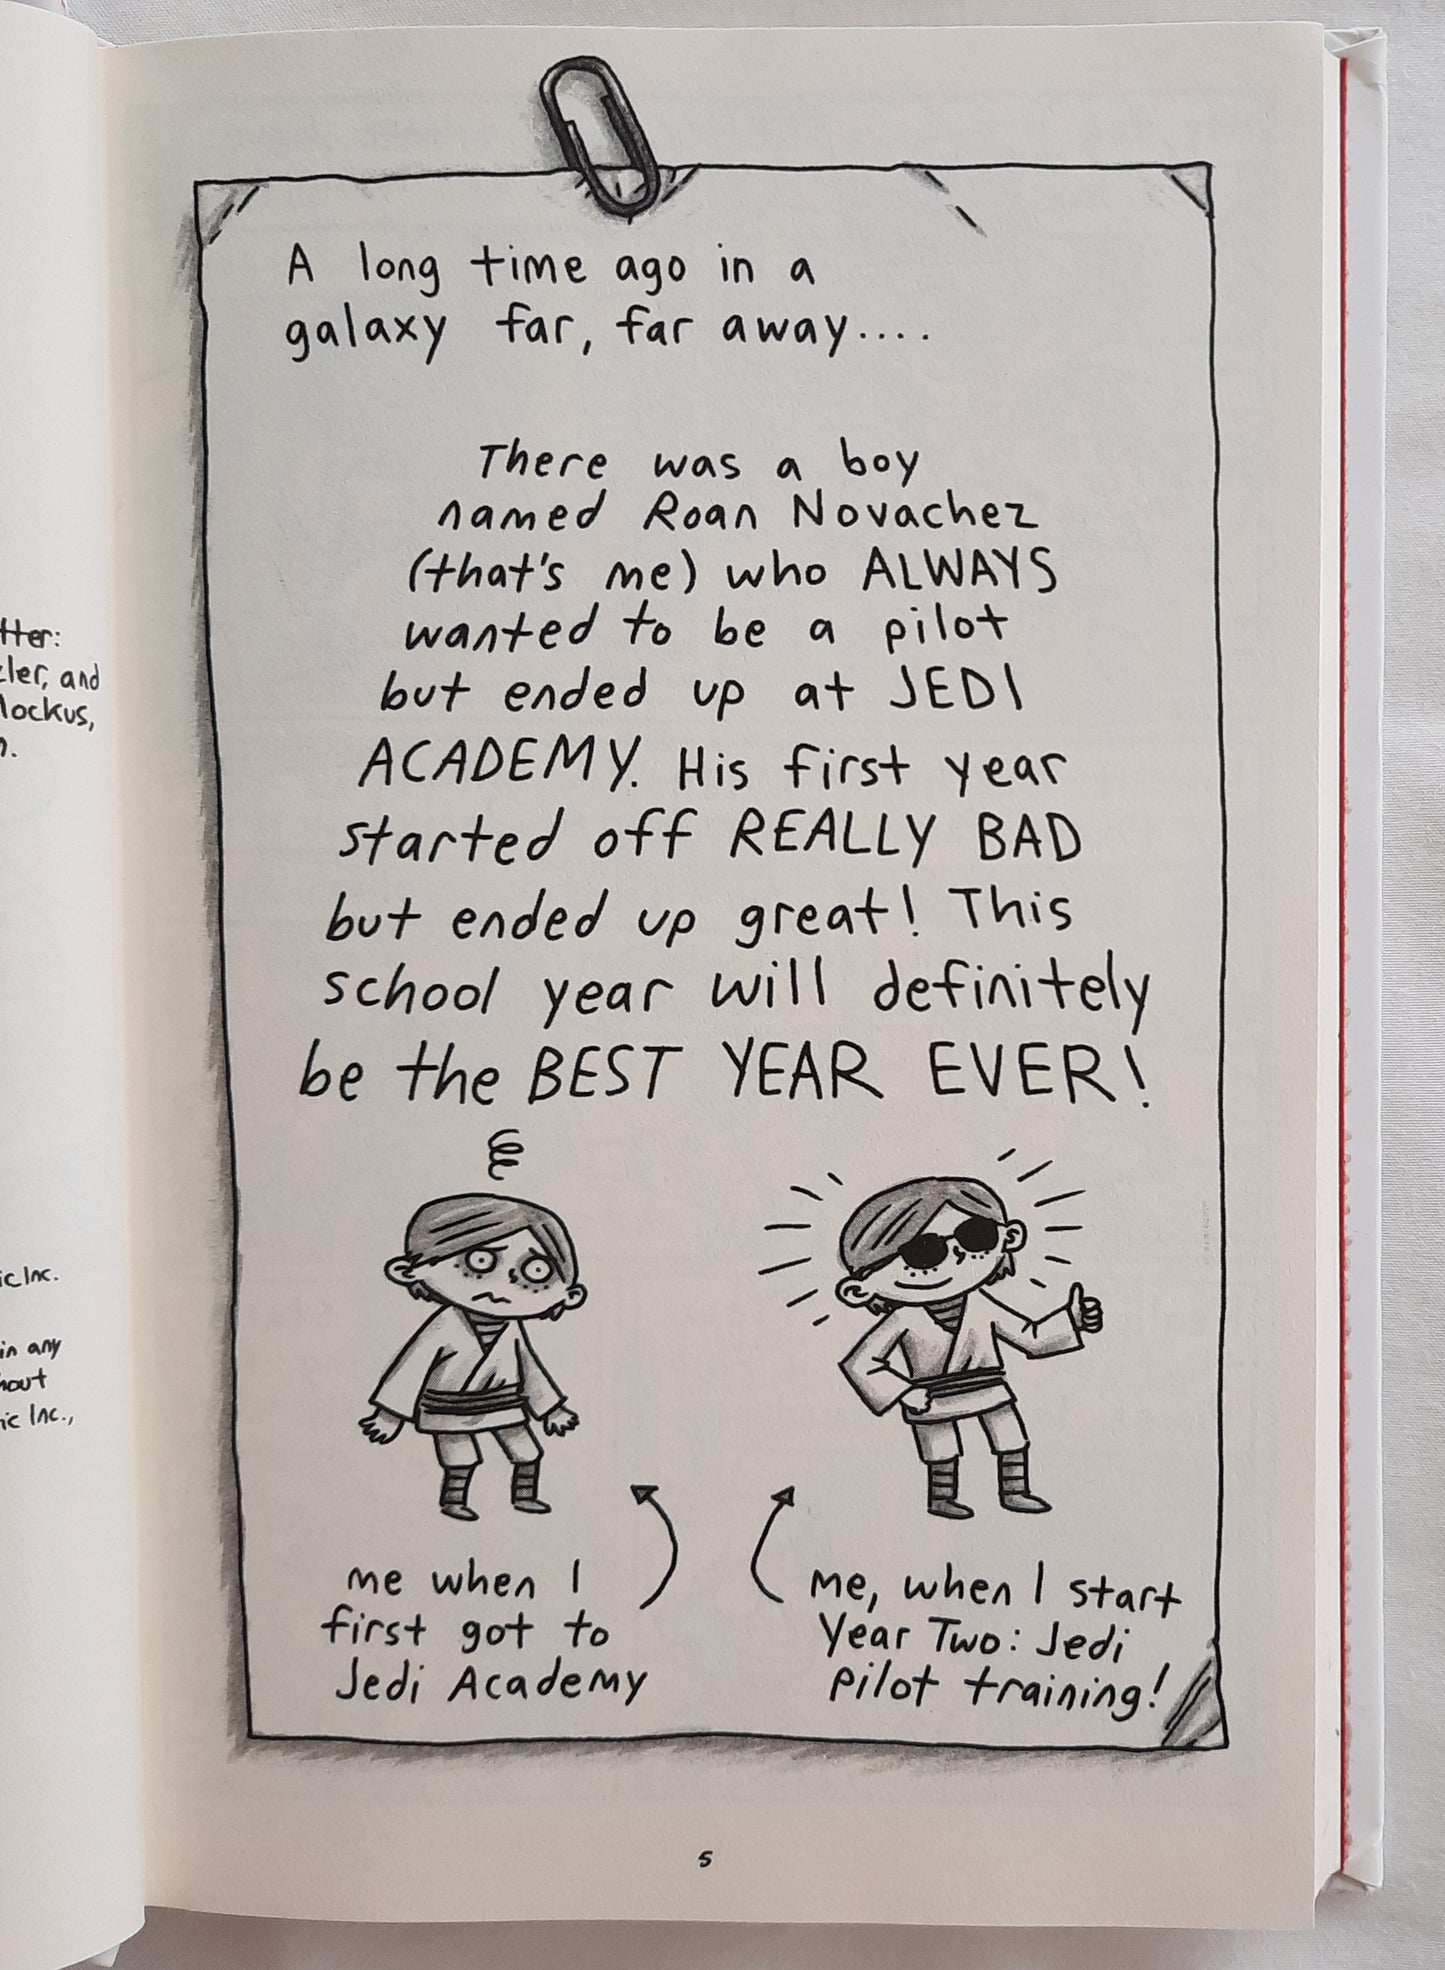 tter:
ler, and
lockus,
ic Inc.
in any
hout
ic Inc.,
A long time ago in a
galaxy far, far away....
There was a boy
named Roan Novachez
(that's me) who ALWAYS
wanted to be a pilot
but ended up at JEDI
ACADEMY. His first year
started off REALLY BAD
but ended up great! This
school year will definitely
be the BEST YEAR EVER!
me when I
first got to
Jedi Academy
me, when I start
Year Two: Jedi
pilot training!
5